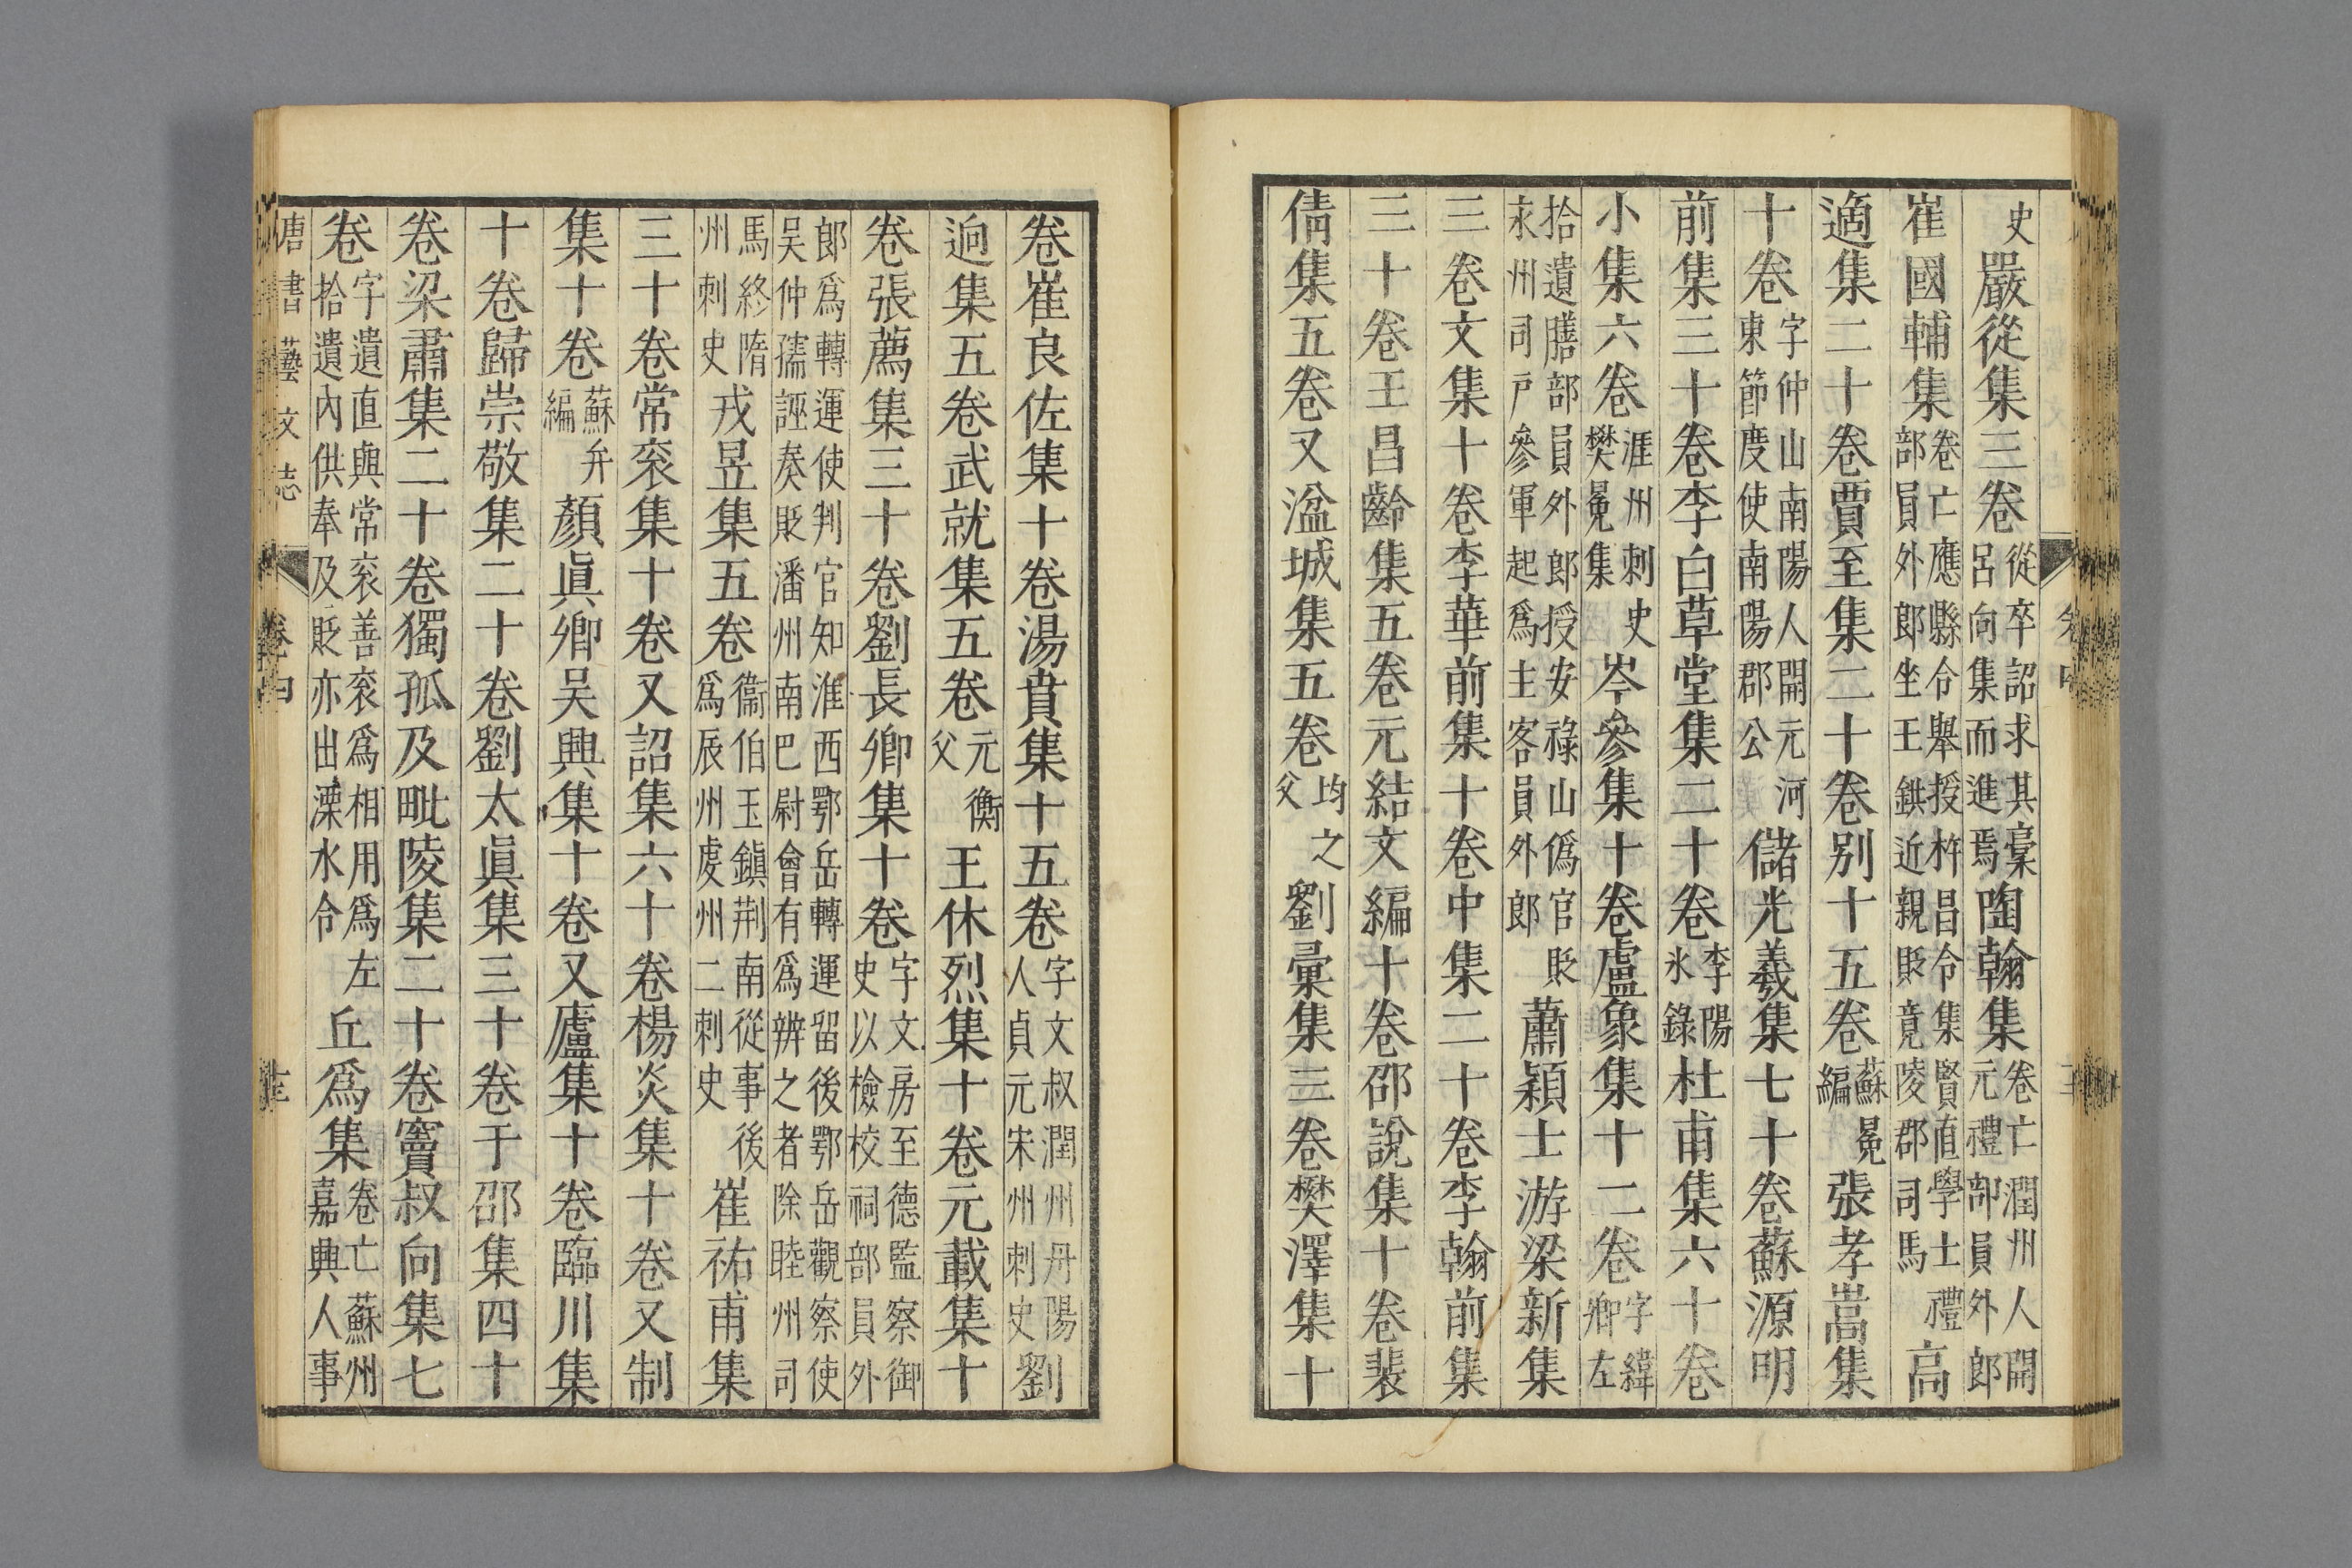 史嚴從集三卷從卒詔求其稾呂向集而進焉陶翰集卷亡潤州人開元禮部員外郎
崔國輔集卷亡應縣令舉授杵昌令集賢直學士禮部員外郎坐王鉷近親貶竟陵郡司馬高
適集二十卷賈至集二十卷別十五卷蘇冕編張孝嵩集
十卷字仲山南陽人開元河東節度使南陽郡公儲光羲集七十卷蘇源明
前集三十卷李白草堂集二十卷李陽氷錄杜甫集六十卷
小集六卷涯州刺史樊冕集岑參集十卷盧象集十二卷字緯卿左
拾遺膳部員外郎授安祿山僞官貶永州司戸參軍起爲主客員外郎蕭穎士游梁新集
三卷文集十卷李華前集十卷中集二十卷李翰前集
三十卷王昌齡集五卷元結文編十卷邵說集十卷裴
倩集五卷又湓城集五卷均之父劉彙集三卷樊澤集十
卷崔良佐集十卷湯賁集十五卷字文叔潤州丹陽人貞元宋州刺史劉
迥集五卷武就集五卷元衡父王休烈集十卷元載集十
卷張薦集三十卷劉長卿集十卷字文房至德監察御史以檢校祠部員外
郎爲轉運使判官知淮西鄂岳轉運留後鄂岳觀察使吳仲孺誣奏貶潘州南巴尉會有爲辨之者除睦州司
馬終隋州刺史戎昱集五卷衞伯玉鎭荆南從事後爲辰州虔州二刺史崔祐甫集
三十卷常衮集十卷又詔集六十卷楊炎集十卷又制
集十卷蘇弁編顏眞卿吳興集十卷又廬集十卷臨川集
十卷歸崇敬集二十卷劉太眞集三十卷于邵集四十
卷梁肅集二十卷獨孤及毗陵集二十卷竇叔向集七
卷字遺直與常衮善衮爲相用爲左拾遺內供奉及貶亦出溧水令丘爲集卷亡蘇州嘉興人事
唐書藝文志 卷四十